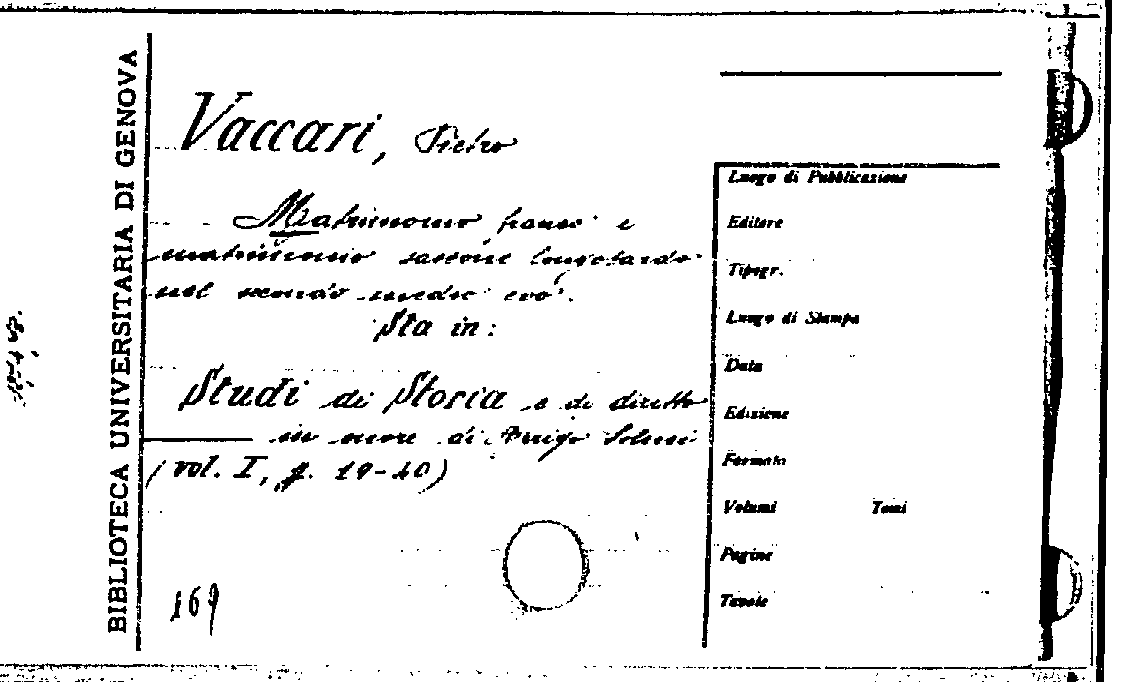 BIBLIOTECA UNIVERSITARIA DI GENOVA
Vaccari, Pietro
Matrimonio franco e
matrimonio sassone longobardo
nel secondo medio evo.
Sta in:
Studi di Storia e di diritto
in onore di Arrigo Solmi
(vol. I, p. 19-40)
169
Luogo di Pubblicazione
Editore
Tipogr.
Luogo di Stampa
Data
Edizione
Formato
Volumi Tomi
Pagine
Tavole